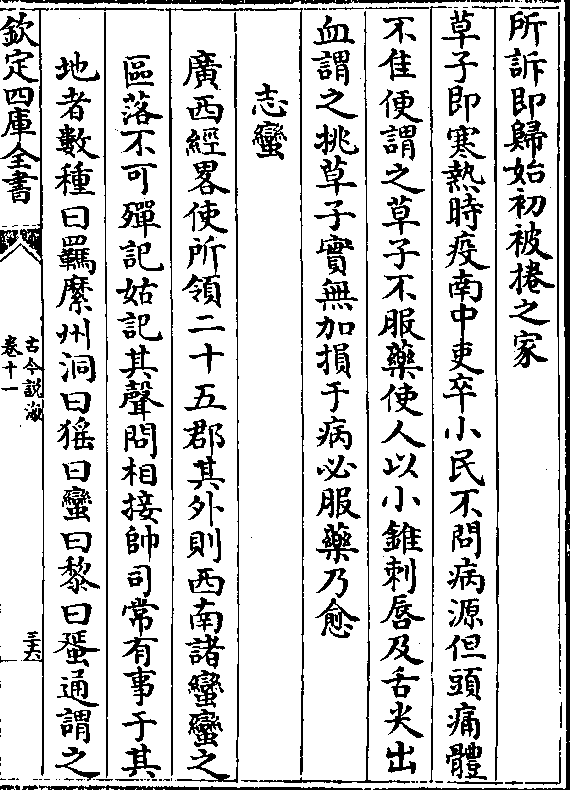 所訴即歸始初被捲之家
草子即寒熱時疫南中吏卒小民不問病源但頭痛體
不佳便謂之草子不服藥使人以小錐刺唇及舌尖出
血謂之挑草子實無加損于病必服藥乃愈
志蠻
廣西經畧使所領二十五郡其外則西南諸蠻蠻之
區落不可殫記姑記其聲問相接帥司常有事于其
地者數種曰羈縻州洞曰猺曰蠻曰黎曰蜑通謂之
欽定四庫全書
古今説海
卷十一
三六